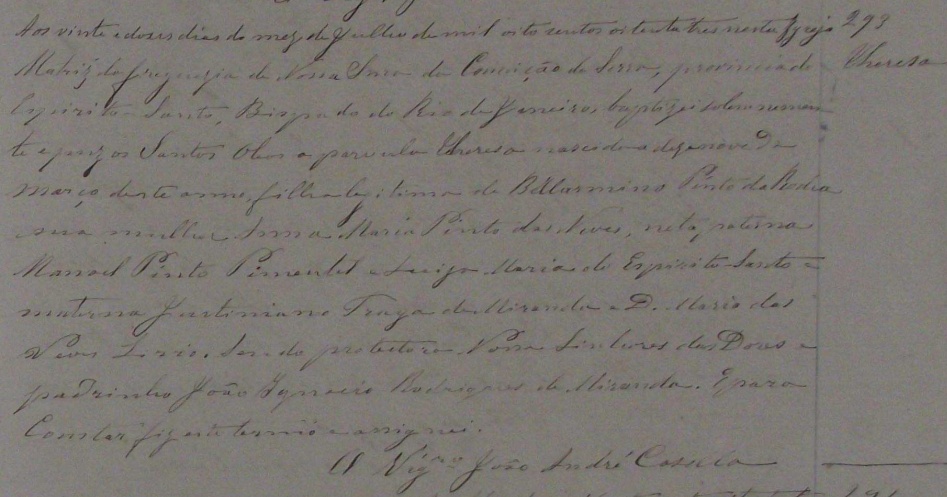 Aos vinte e doses dias do mez de Julho de mil oito centos oitenta tres nesta Igreja 293
Matriz da freguezia de Nossa Snra da Conceição da Serra, provincia do Theresa
Espirito-Santo, Bispado do Rio de Janeiro, baptizei solennemen-
te e puz os Santos Oleos a parvula Theresa nascida a dezenove de
Março deste anno, filha legitima de Bellarmino Pinto da Rocha
sua mulher Anna Maria Pinto das Neves, neta paterna
Manoel Pinto Pimentel e Luiza Maria do Espirito-Santo e
materna Justiniano Fraga de Miranda e D. Maria das
Neves Lirio. Sendo protectora Nossa Senhores das Dores e
padrinho João Ignacio Rodrigues de Miranda. E para
Constar fiz este termo e assignei.
O Vigro João André Casella